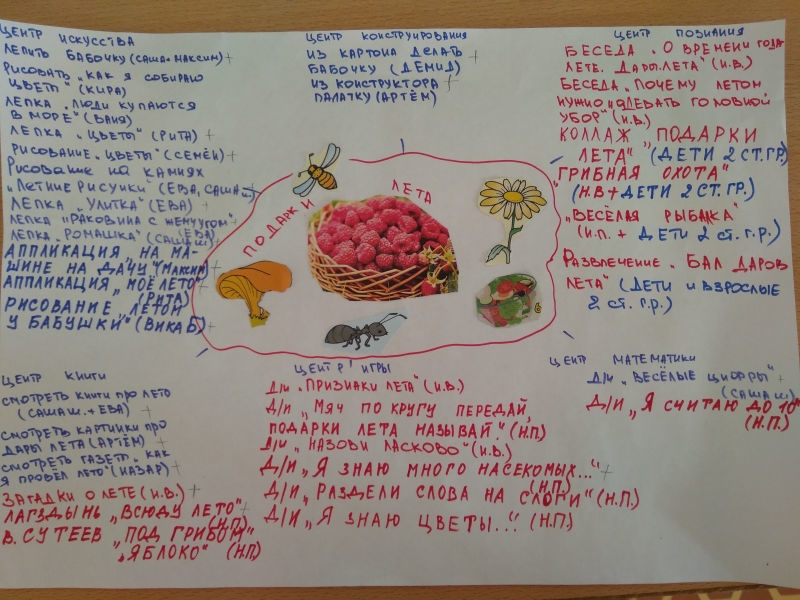 ЦЕНТР ИСКУССТВА
ЛЕПИТЬ БАБОЧКУ (САША + МАКСИМ) +
РИСОВАТЬ „КАК Я СОБИРАЮ
ЦВЕТЫ" (КИРА) +
ЛЕПКА „ЛЮДИ КУПАЮТСЯ
В МОРЕ" (ВАНЯ)
ЛЕПКА „ЦВЕТЫ" (РИТА) +
РИСОВАНИЕ „ЦВЕТЫ" (СЕМЁН) +
РИСОВАНИЕ НА КАМНЯХ
„ЛЕТНИЕ РИСУНКИ" (ЕВА, САША Ш.) +
ЛЕПКА „УЛИТКА" (ЕВА) +
ЛЕПКА „РАКОВИНА С ЖЕМЧУГОМ" +
(ЕВА)
ЛЕПКА „РОМАШКА" (САША Ш.) +
АППЛИКАЦИЯ „НА МА-
ШИНЕ НА ДАЧУ" (МАКСИМ)
АППЛИКАЦИЯ „МОЁ ЛЕТО" +
(РИТА)
РИСОВАНИЕ „ЛЕТОМ
У БАБУШКИ" (ВИКА Б) +
ЦЕНТР КОНСТРУИРОВАНИЯ
ИЗ КАРТОНА ДЕЛАТЬ
БАБОЧКУ (ДЕМИД) +
ИЗ КОНСТРУКТОРА +
ПАЛАТКУ (АРТЁМ)
ЦЕНТР ПОЗНАНИЯ
БЕСЕДА „О ВРЕМЕНИ ГОДА
ЛЕТЕ. ДАРЫ ЛЕТА" (И.В.)
БЕСЕДА „ПОЧЕМУ ЛЕТОМ
НУЖНО ОДЕВАТЬ ГОЛОВНОЙ
УБОР" (И.В.)
КОЛЛАЖ „ПОДАРКИ
ЛЕТА" (ДЕТИ 2 СТ. ГР.)
„ГРИБНАЯ ОХОТА"
(Н.В + ДЕТИ 2 СТ. ГР.)
„ВЕСЁЛАЯ РЫБАЛКА"
(И.П. + ДЕТИ 2 СТ. Г.Р.)
РАЗВЛЕЧЕНИЕ „БАЛ ДАРОВ
ЛЕТА" (ДЕТИ И ВЗРОСЛЫЕ
2 СТ. Г.Р.)
ПОДАРКИ ЛЕТА
6
ЦЕНТР КНИГИ
СМОТРЕТЬ КНИГИ ПРО ЛЕТО
(САША Ш. + ЕВА) +
СМОТРЕТЬ КАРТИНКИ ПРО
ДАРЫ ЛЕТА (АРТЁМ) +
СМОТРЕТЬ ГАЗЕТ. „КАК
Я ПРОВЁЛ ЛЕТО" (НАЗАР) +
ЗАГАДКИ О ЛЕТЕ (И.В.) +
ЛАГЗДЫНЬ „ВСЮДУ ЛЕТО" +
(Н.П.)
В. СУТЕЕВ „ПОД ГРИБОМ"
„ЯБЛОКО" (Н.П.)
ЦЕНТР ИГРЫ
Д/И „ПРИЗНАКИ ЛЕТА" (И.В.)
Д/И „МЯЧ ПО КРУГУ ПЕРЕДАЙ,
ПОДАРКИ ЛЕТА НАЗЫВАЙ." (Н.П.)
Д/И „НАЗОВИ ЛАСКОВО" (И.В.)
Д/И „Я ЗНАЮ МНОГО НАСЕКОМЫХ..." +
(Н.П.)
Д/И „РАЗДЕЛИ СЛОВА НА СЛОГИ" (Н.П.)
Д/И „Я ЗНАЮ ЦВЕТЫ..." (Н.П.)
ЦЕНТР МАТЕМАТИКИ
Д/И „ВЕСЁЛЫЕ ЦИФРЫ" +
(САША Ш.)
Д/И „Я СЧИТАЮ ДО 10"
(Н.П.)